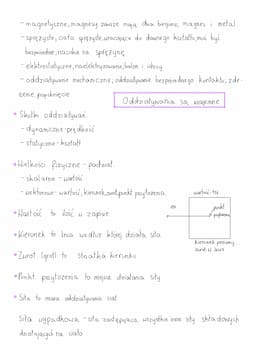 - magnetyczne, magnesy zawsze mają dwa bieguny, magnes i metal
- sprężyste, ciała sprężyste, wracające do dawnego kształtu, musi być
bezpośrednie, nacisk na sprężynę
- elektrostatyczne, naelektryzowane, balon i włosy
- oddziaływanie mechaniczne, oddziaływanie bezpośredniego kontaktu, zde-
rzenie, popchnięcie
Oddziaływania są wzajemne
• Skutki oddziaływań:
- dynamiczne - prędkość
- statyczne - kształt
• Wielkości fizyczne - podział
- skalarne - wartość
- wektorowe - wartość, kierunek, zwrot, punkt przyłożenia
wartość - 1N
punkt
Kierunek poziomy
zwrot w
• Wartość to ilość w zapisie
• Kierunek to linia wzdłuż której działa siła
• Zwrot (grot) to strzałka kierunku
• Punkt przyłożenia to miejsce działania siły
• Siła to miara oddziaływania ciał
Siła wypadkowa - siła zastępująca wszystkie inne siły składowych
działających na ciało